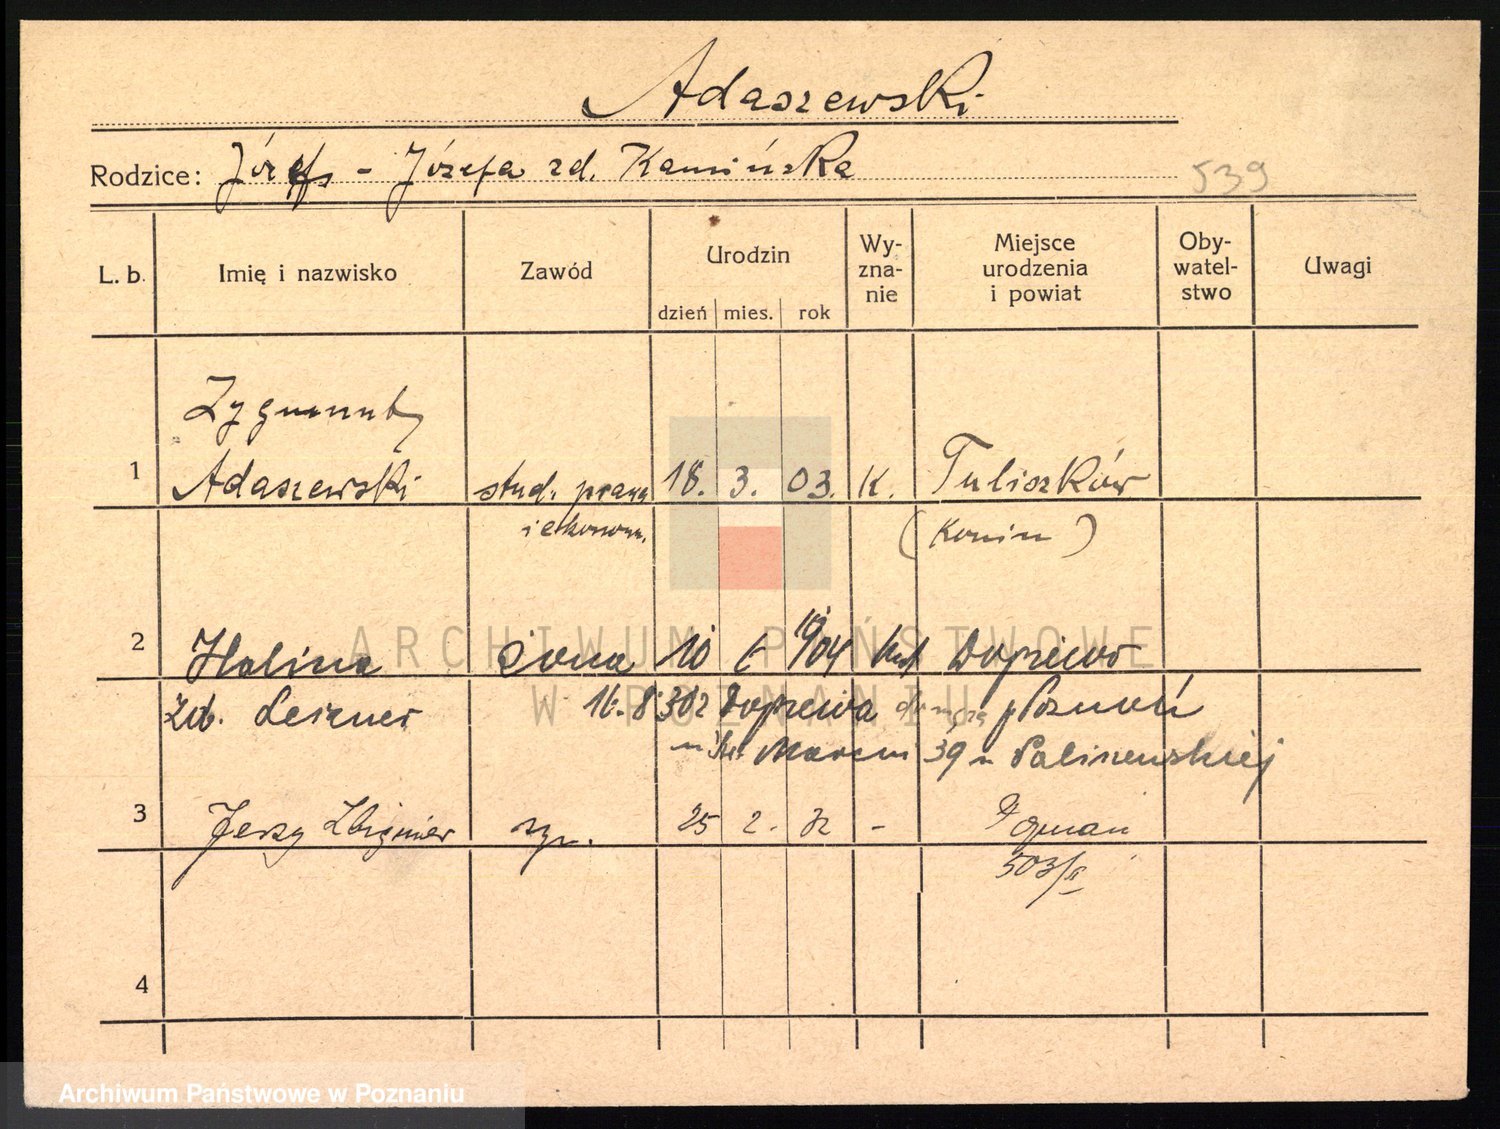 Adaszewski
Rodzice: Józefa - Józefa zd. Kamińska
539
L. b. Imię i nazwisko Zawód Urodzin Wy-zna-nie Miejsce urodzenia i powiat Oby-watel-stwo Uwagi
dzień mies. rok
Zygmunt
1 Adaszewski stud. prawa 18. 3. 03. K. Tuliszków
i ekonom. (Konin)
2 Halina żona 10 1904 Dopiewo
zd. Leszner 16. 8 Dopiewa Poznań
Marcin 39
3 Jerzy Zbigniew syn. 25 2. 32 - Poznań
503/II
4
ARCHIWUM PAŃSTWOWE
W POZNANIU
Archiwum Państwowe w Poznaniu